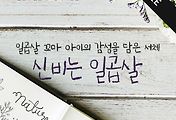 일곱살 꼬마 아이의 감성을 담은 서체
신비는 일곱살
nature